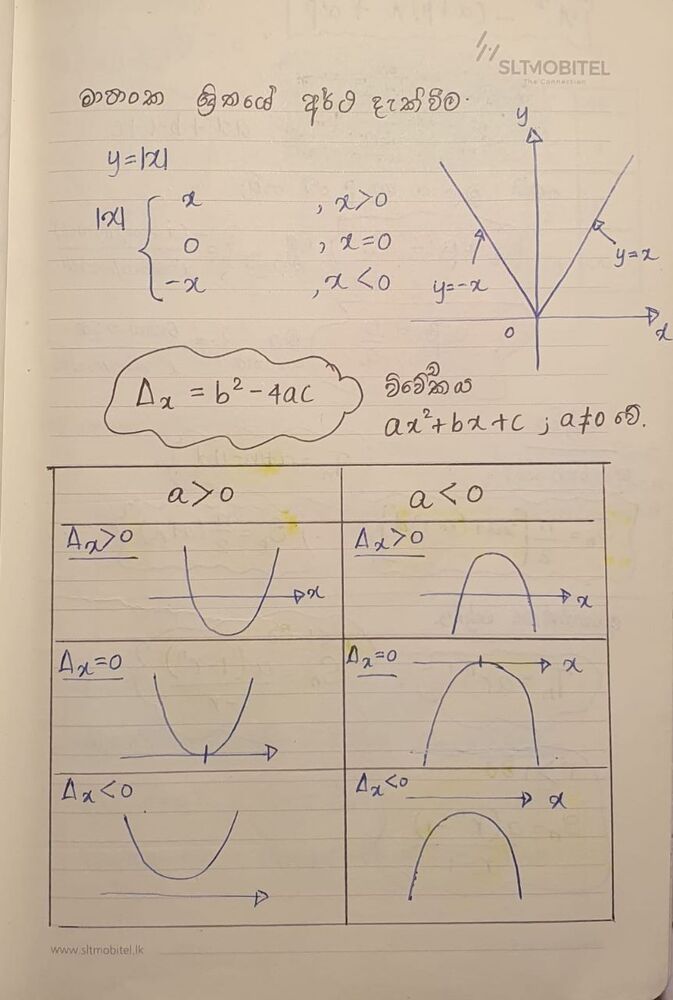 SLTMOBITEL
The Connection
මාපාංක ශ්‍රිතයේ අර්ථ දැක්වීම.
y=|x|
|x| { x , x>0
0 , x=0
-x , x<0
y
y=-x
y=x
0
x
Δx = b² - 4ac
විවේකය
ax²+bx+c ; a≠0 වේ.
a>0 a<0
Δx>0 Δx>0
x x
Δx=0 Δx=0
x
Δx<0 Δx<0
x
www.sltmobitel.lk